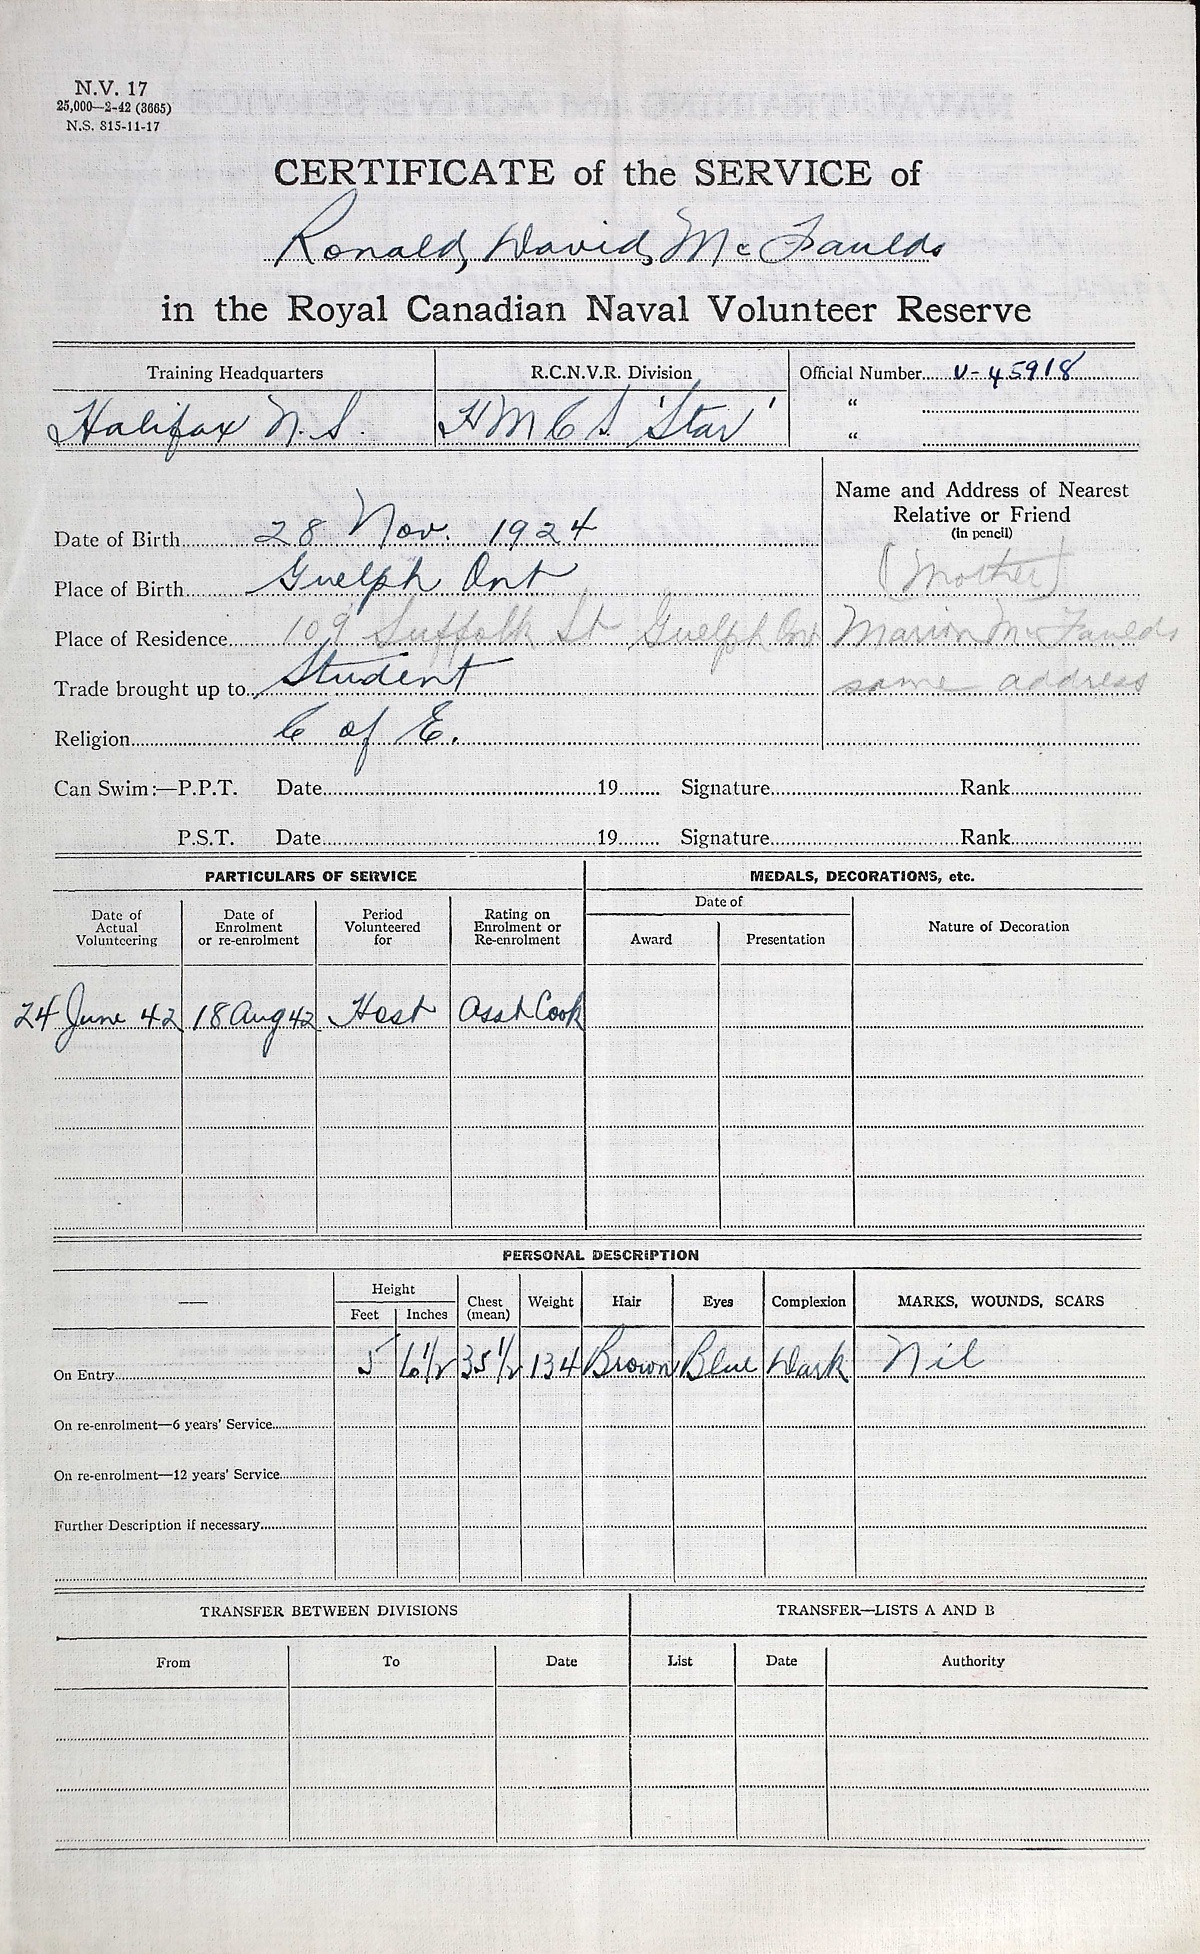 N.V. 17
25,000—2-42 (3665)
N.S. 815-11-17
CERTIFICATE of the SERVICE of
Ronald, David, McFaulds
in the Royal Canadian Naval Volunteer Reserve
Training Headquarters R.C.N.V.R. Division Official Number V-45918
Halifax N.S. HMCS 'Star' "
"
Name and Address of Nearest
Relative or Friend
(in pencil)
Date of Birth 28 Nov. 1924
(Mother)
Place of Birth Guelph Ont
Place of Residence 109 Suffolk St Guelph Ont Marion McFaulds
Trade brought up to Student same address
Religion C of E.
Can Swim:—P.P.T. Date 19 Signature Rank
P.S.T. Date 19 Signature Rank
PARTICULARS OF SERVICE MEDALS, DECORATIONS, etc.
Date of Actual Volunteering Date of Enrolment or re-enrolment Period Volunteered for Rating on Enrolment or Re-enrolment Date of Award Presentation Nature of Decoration
24 June 42 18 Aug 42 Host Asst Cook
PERSONAL DESCRIPTION
— Height Feet Inches Chest (mean) Weight Hair Eyes Complexion MARKS, WOUNDS, SCARS
On Entry 5 6½ 35½ 134 Brown Blue Dark Nil
On re-enrolment—6 years' Service
On re-enrolment—12 years' Service
Further Description if necessary
TRANSFER BETWEEN DIVISIONS TRANSFER—LISTS A AND B
From To Date List Date Authority